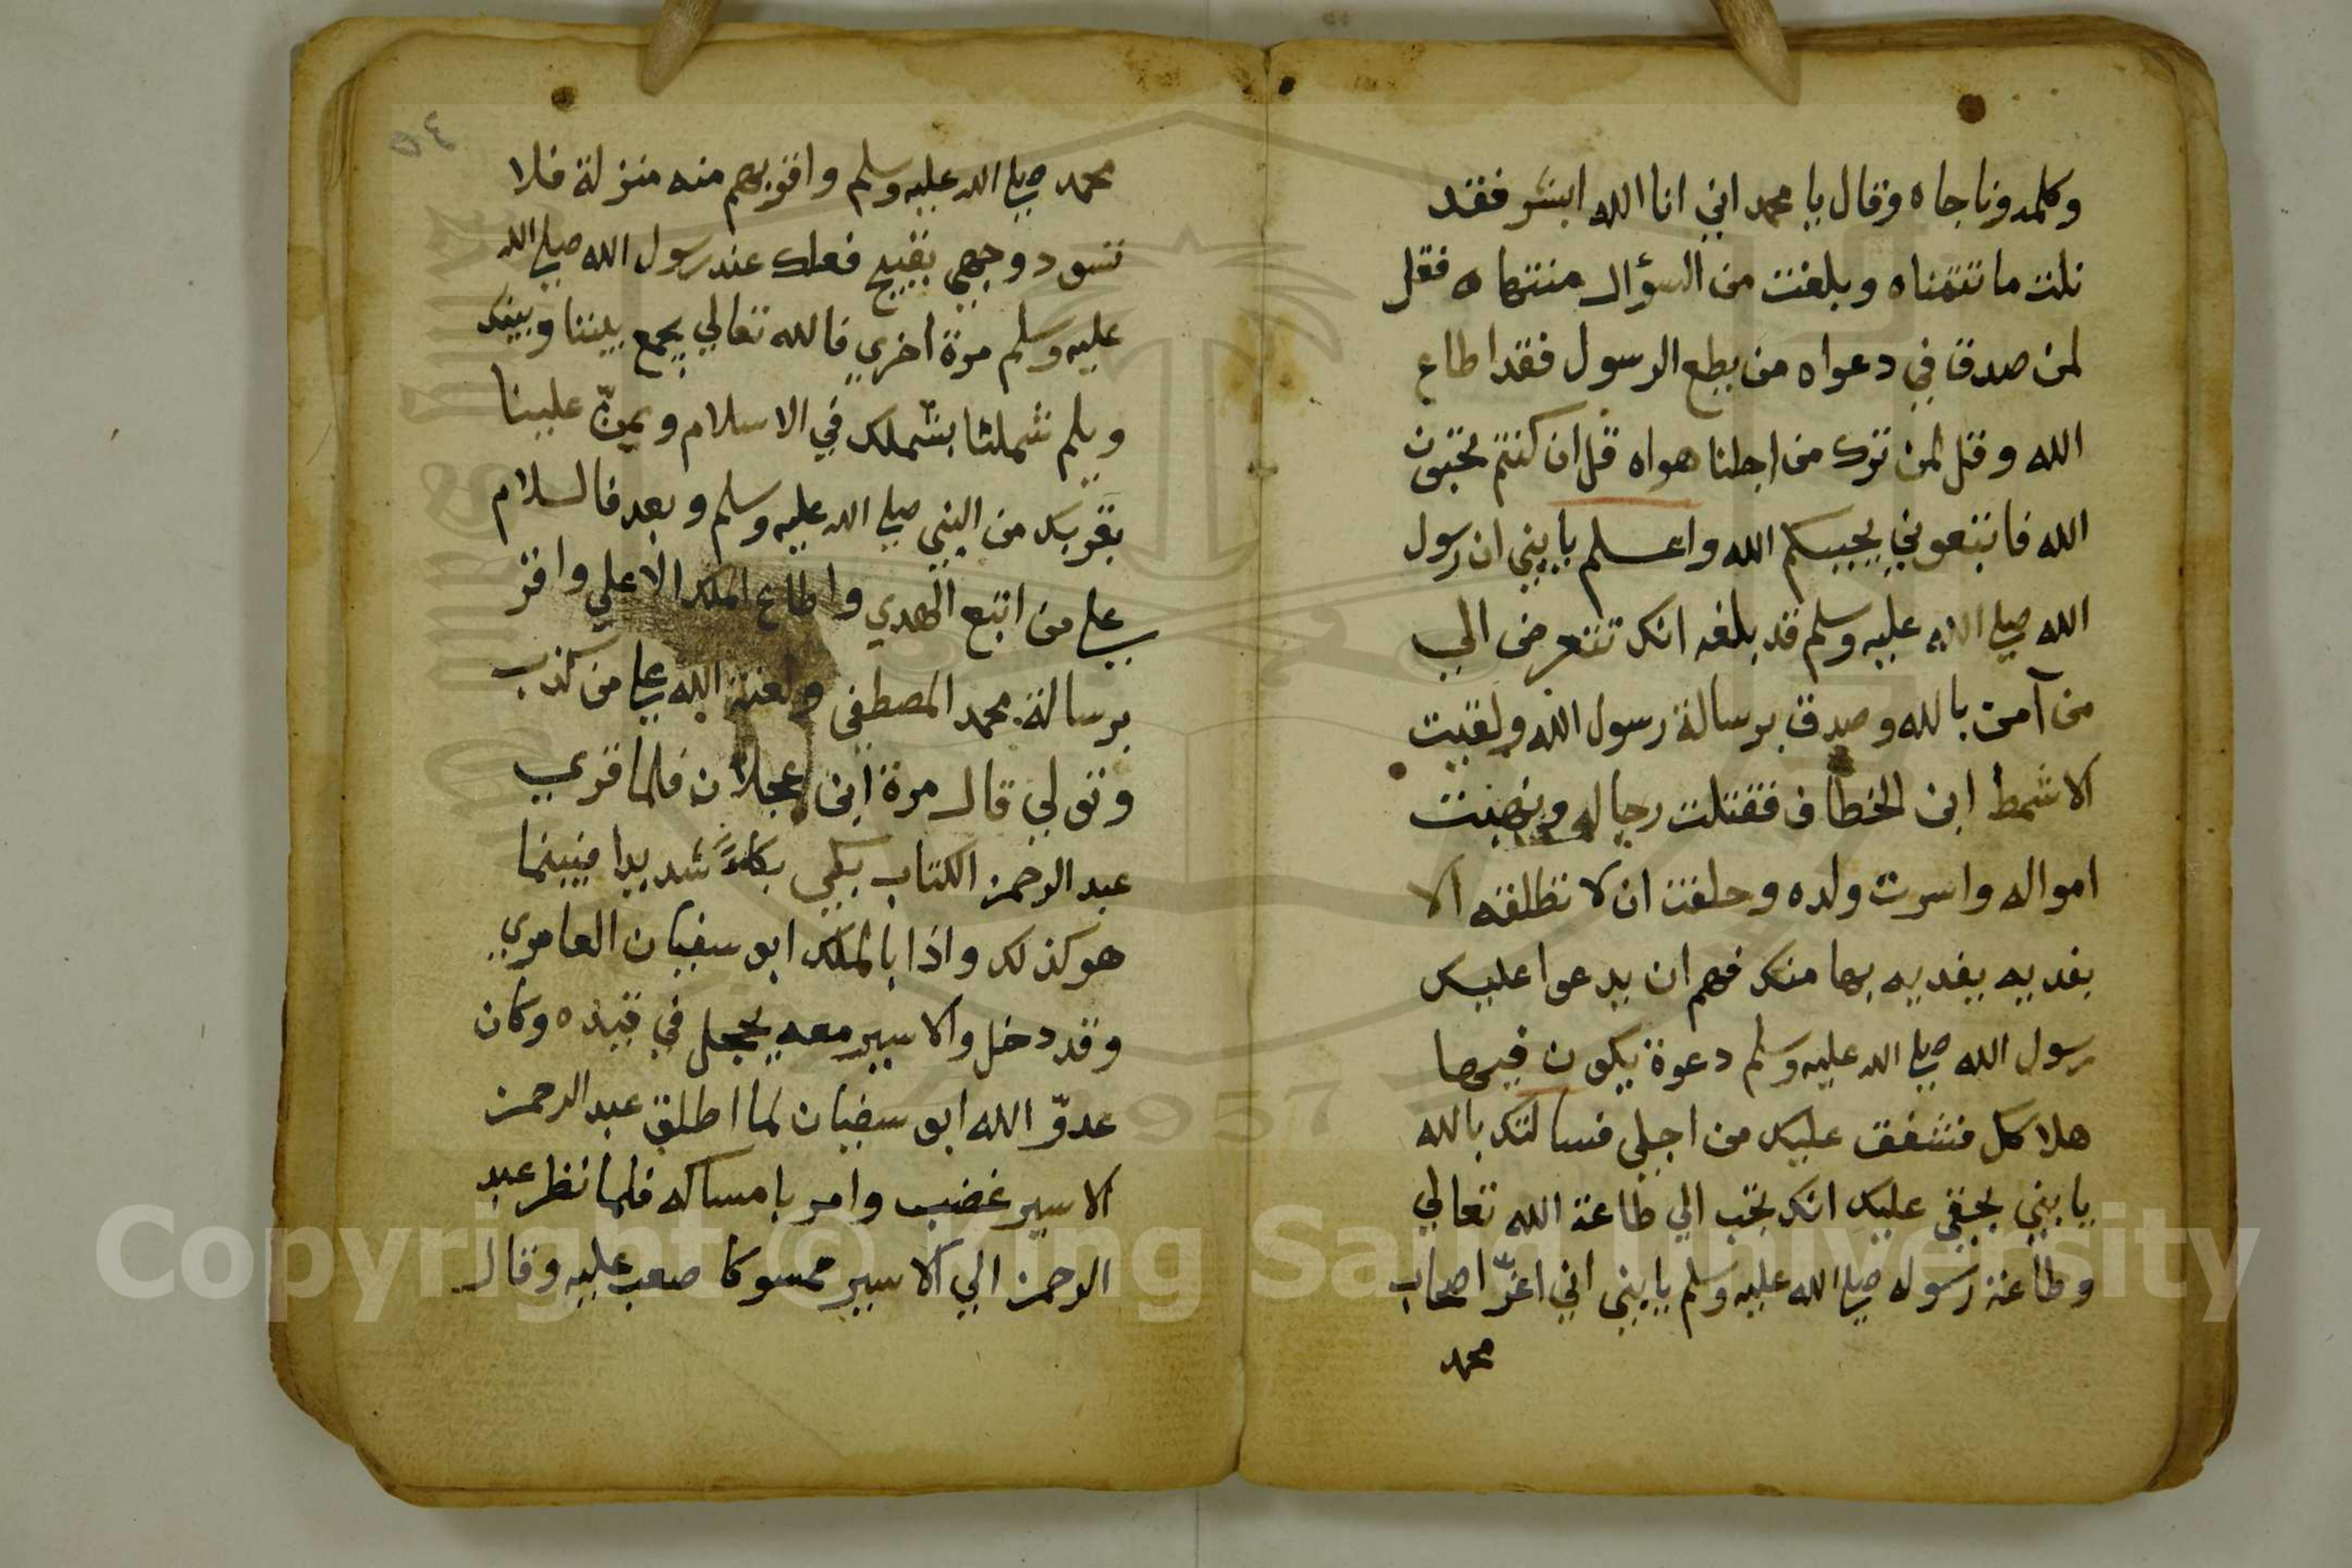 وكلمه وناجاه وقال يا محمد اني انا الله ابشر فقد
نلت ما تتمناه وبلغت من السؤال منتهاه فقل
لمن صدق في دعواه من يطع الرسول فقد اطاع
الله وقل لمن ترك من اجلنا هواه قل ان كنتم تحبون
الله فاتبعوني يحببكم الله واعلم يا بني ان رسول
الله صلي الله عليه وسلم قد بلغه انك تتعرض الي
من آمن بالله وصدق برسالة رسول الله ولقيت
الاشمط ابن الخطاف فقتلت رجاله ونهبت
امواله واسرت ولده وحلفت ان لا تطلقه الا
بفديه يفديه بها منك فهم ان يدعوا عليك
رسول الله صلي الله عليه وسلم دعوة يكون فيها
هلاكك فتشفق عليك من اجلي فسالتك بالله
يا بني بحقي عليك انك تجب الي طاعة الله تعالي
وطاعة رسوله صلي الله عليه وسلم يا بني اني اعزّ اصحاب
محمد
٥٤
محمد صلي الله عليه وسلم واقربهم منه منزلة فلا
تسود وجهي بقبيح فعلك عند رسول الله صلي الله
عليه وسلم مرة اخري فالله تعالي يجمع بيننا وبينك
ويلم شملنا بشملك في الاسلام ويمنّ علينا
بقربك من النبي صلي الله عليه وسلم وبعد فالسلام
علي من اتبع الهدي واطاع الملك الاعلي واقر
برسالة محمد المصطفي ولعنة الله علي من كذب
وتولي قال مرة ابن عجلان فلما قري
عبد الرحمن الكتاب بكي بكاءً شديدا فبينما
هو كذلك واذا بالملك ابو سفيان العامري
وقد دخل والاسير معه يحجل في قيده وكان
عدوّ الله ابو سفيان لما اطلق عبد الرحمن
الاسير غضب وامر بامساكه فلما نظر عبد
الرحمن الي الاسير ممسوكا صعب عليه وقال
Copyright © King Saud University
1957